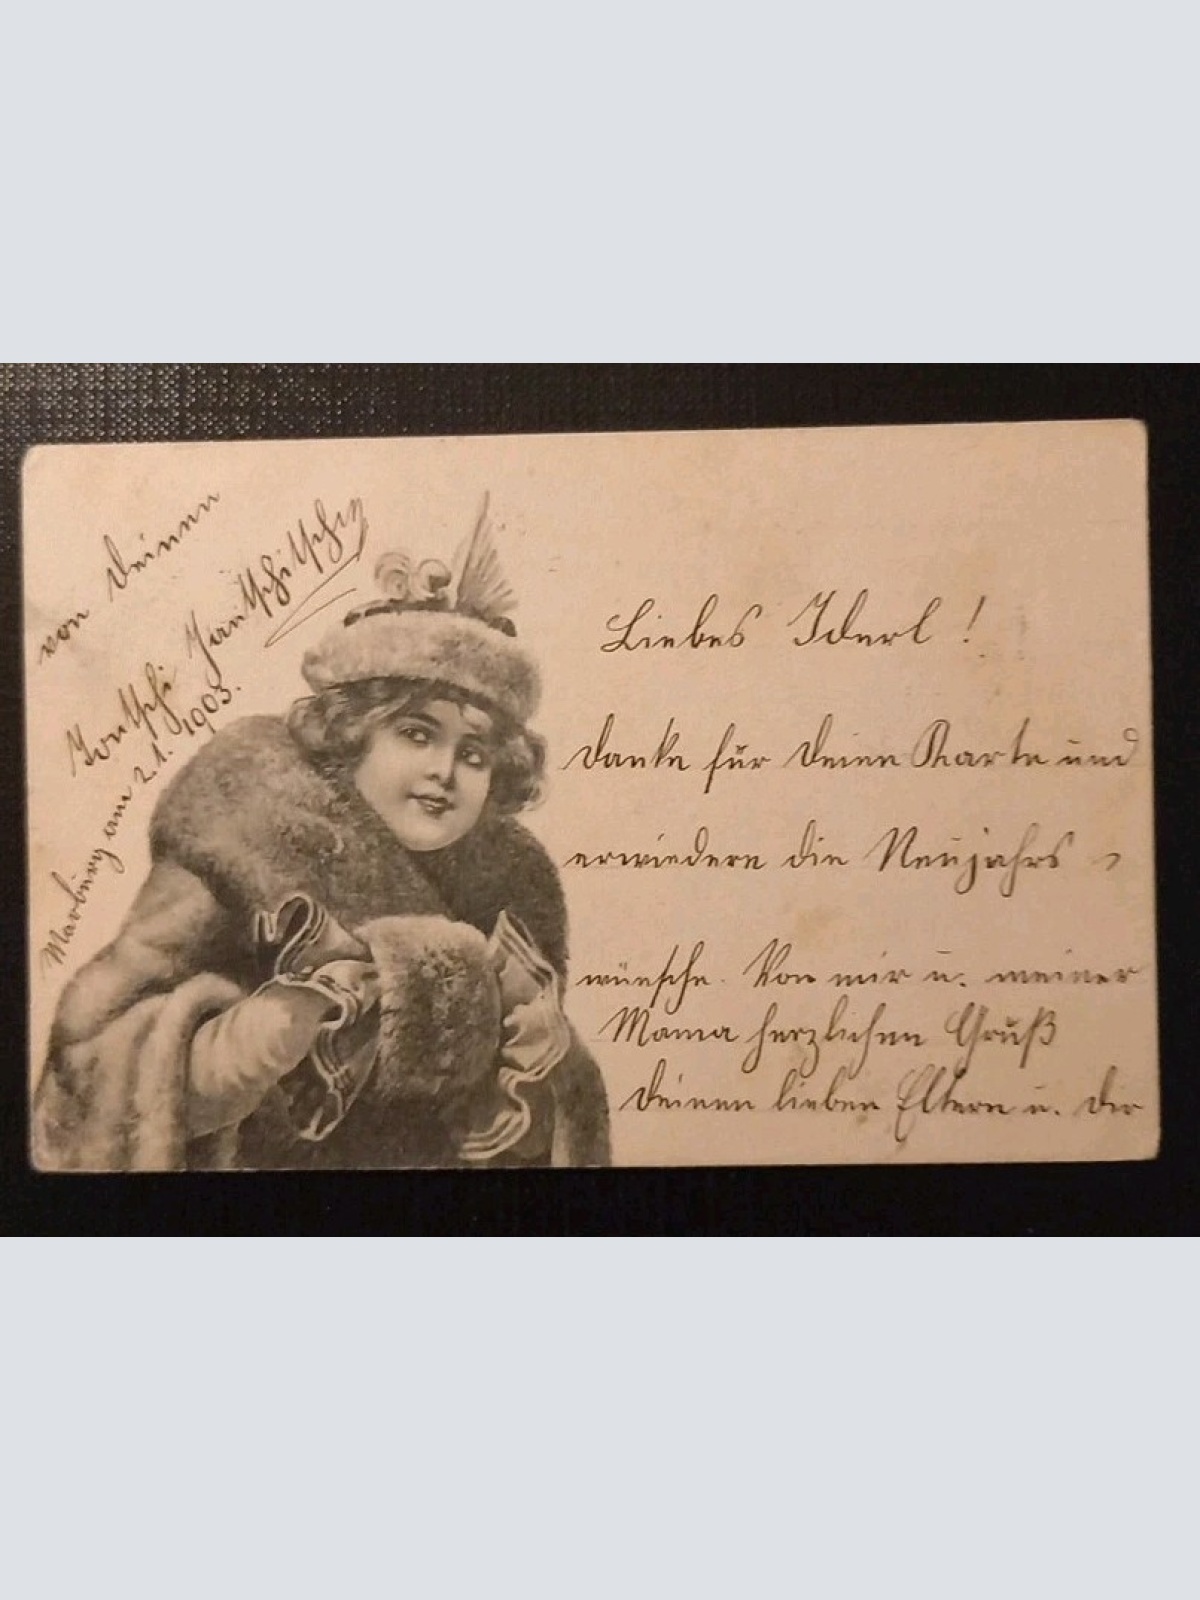 Liebes Iderl!
danke für deine Karte und
erwiedere die Neujahrs-
wünsche. Von mir u. meiner
Mama herzlichen Gruß
deinen lieben Eltern u. dir
von deinen
Marburg am 2.1.1903.